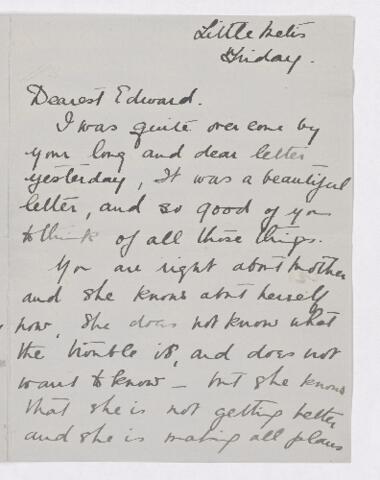 Little Metis
Friday.
Dearest Edward.
I was quite overcome by
your long and dear letter
yesterday, It was a beautiful
letter, and so good of you
to think of all those things.
You are right about Mother
and she knows about herself
now, She does not know what
the trouble is, and does not
want to know – but she knows
that she is not getting better
and she is making all plans